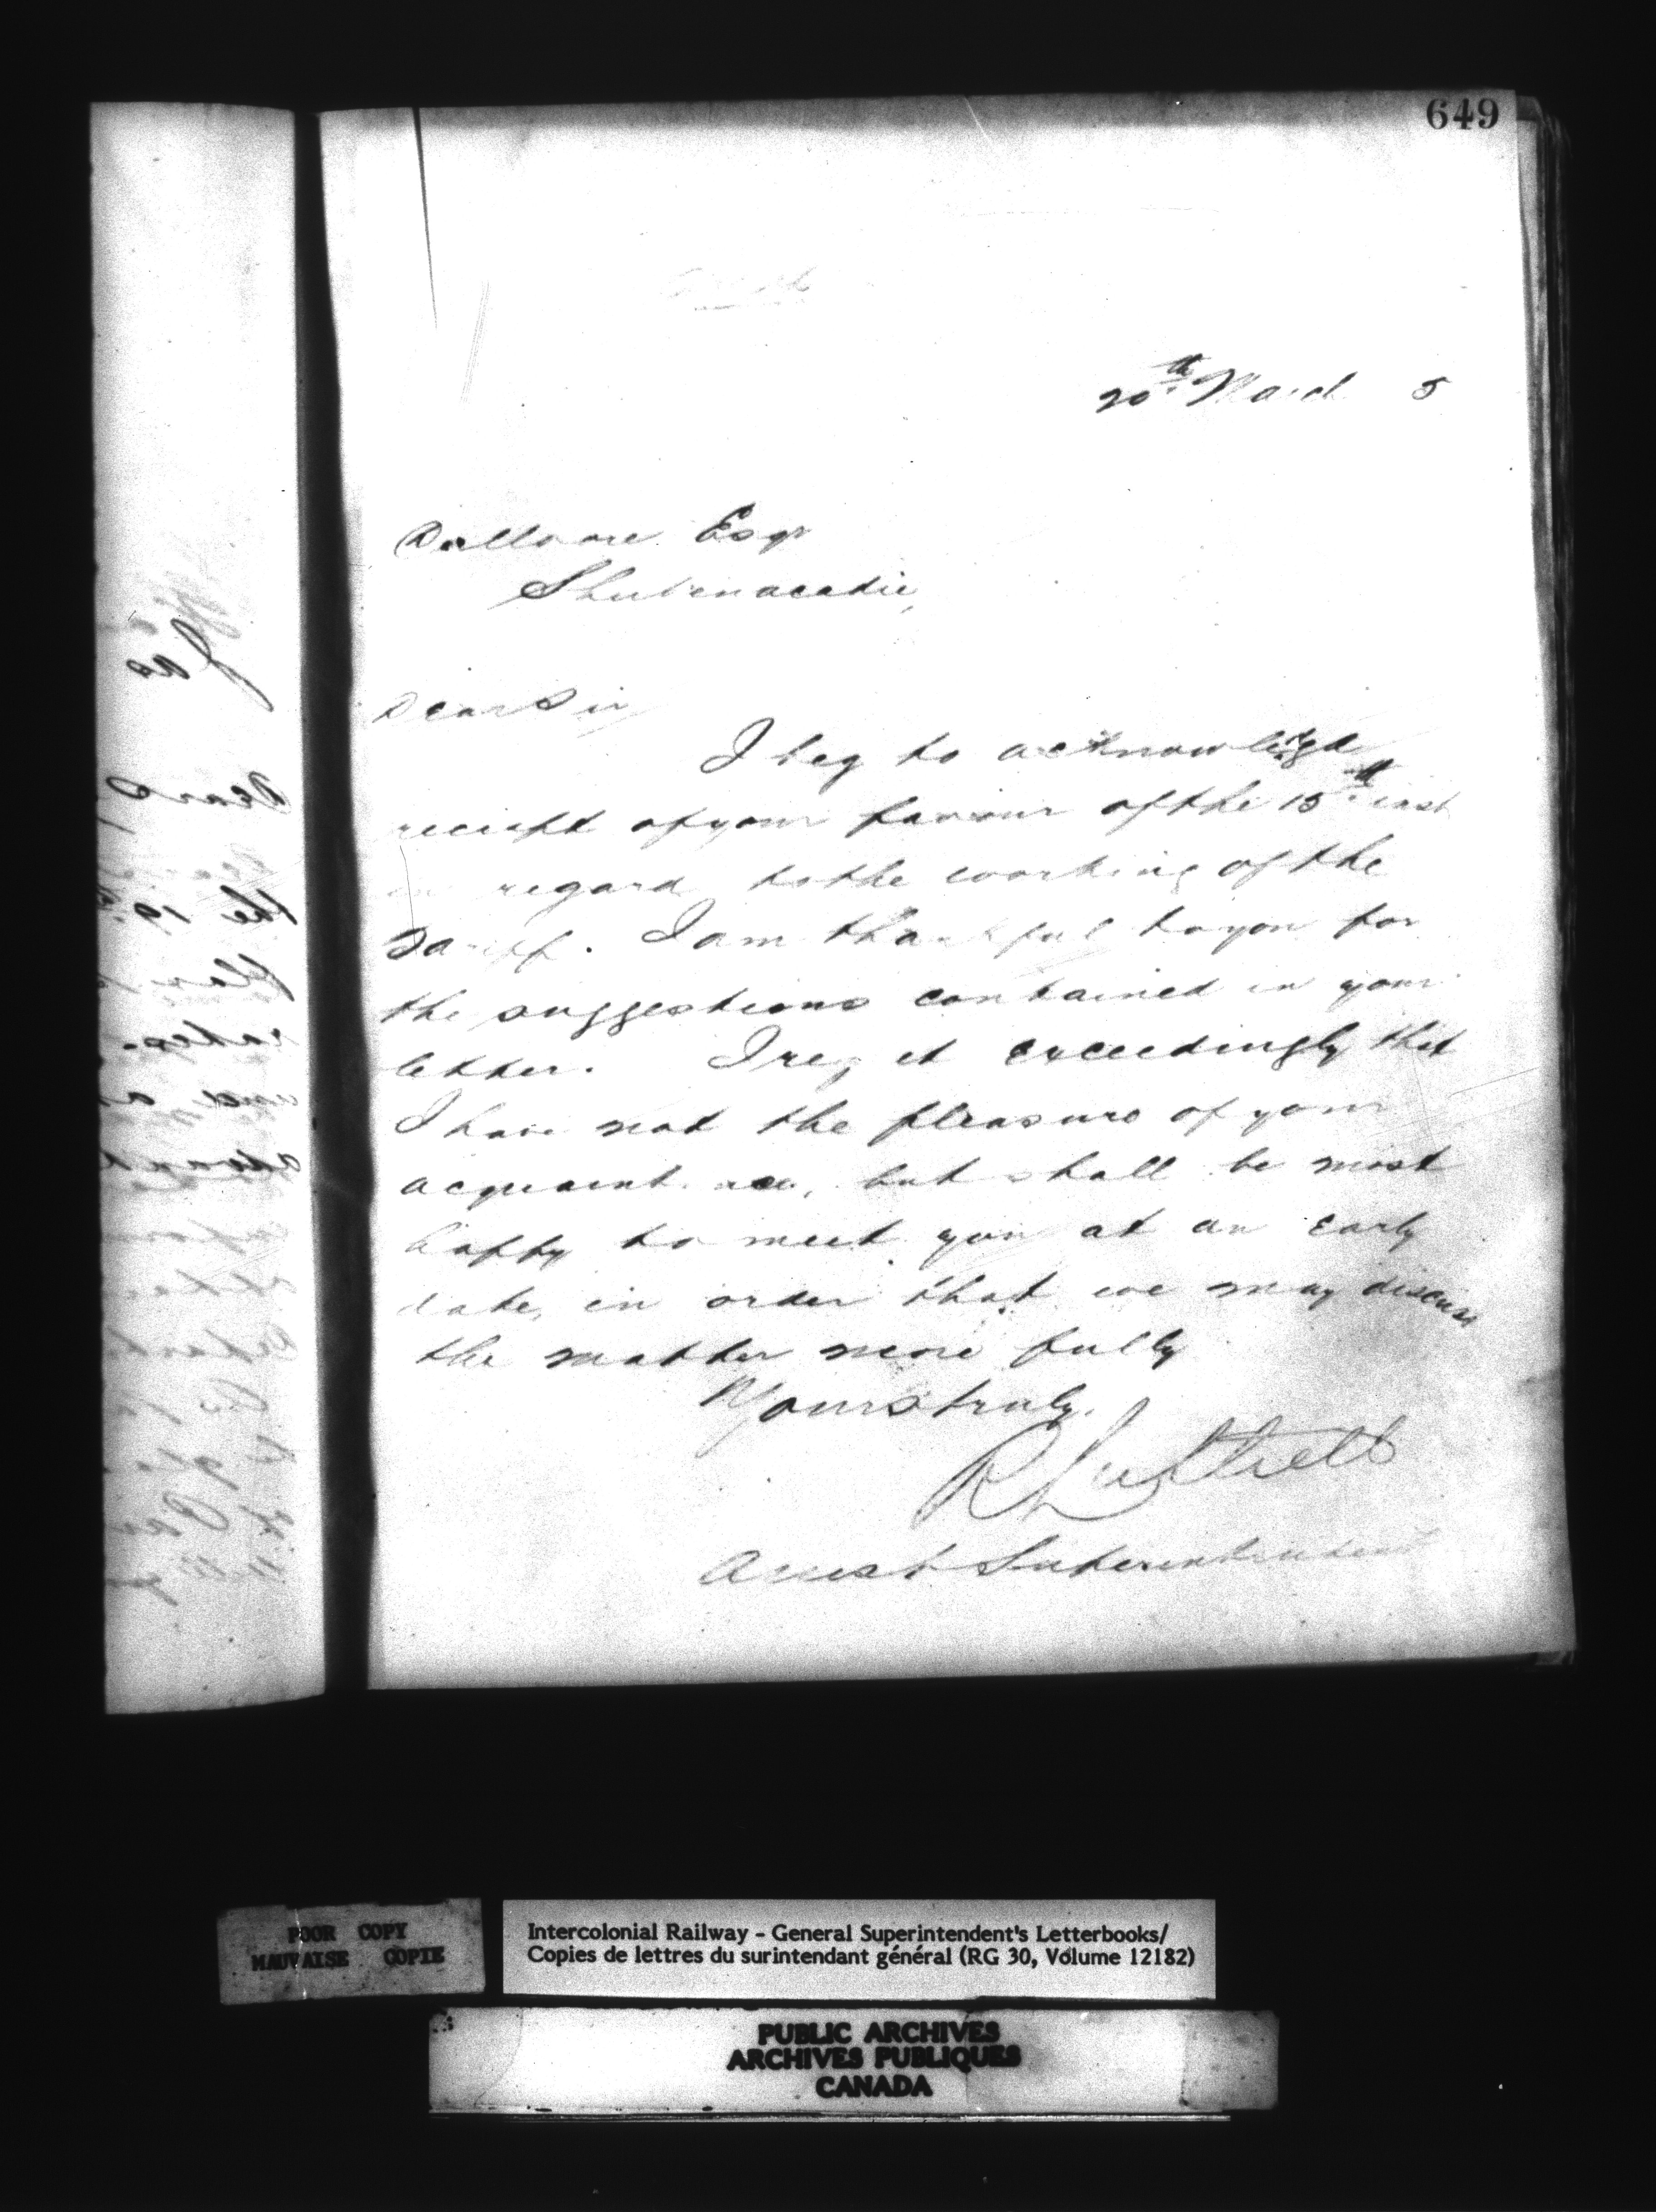 649
20th March 5
Esqr
Shubenacadie,
Dear Sir
I beg to acknowledge
receipt of your favour of the 15th inst
in regard to the working of the
Tariff. I am thankful to you for
the suggestions contained in your
letter. I regret exceedingly that
I have not the pleasure of your
acquaintance, but shall be most
happy to meet you at an early
date, in order that we may discuss
the matter more fully
Yours truly.
R Luttrell
Superintendent
POOR COPY
MAUVAISE COPIE
Intercolonial Railway - General Superintendent's Letterbooks/
Copies de lettres du surintendant général (RG 30, Volume 12182)
PUBLIC ARCHIVES
ARCHIVES PUBLIQUES
CANADA